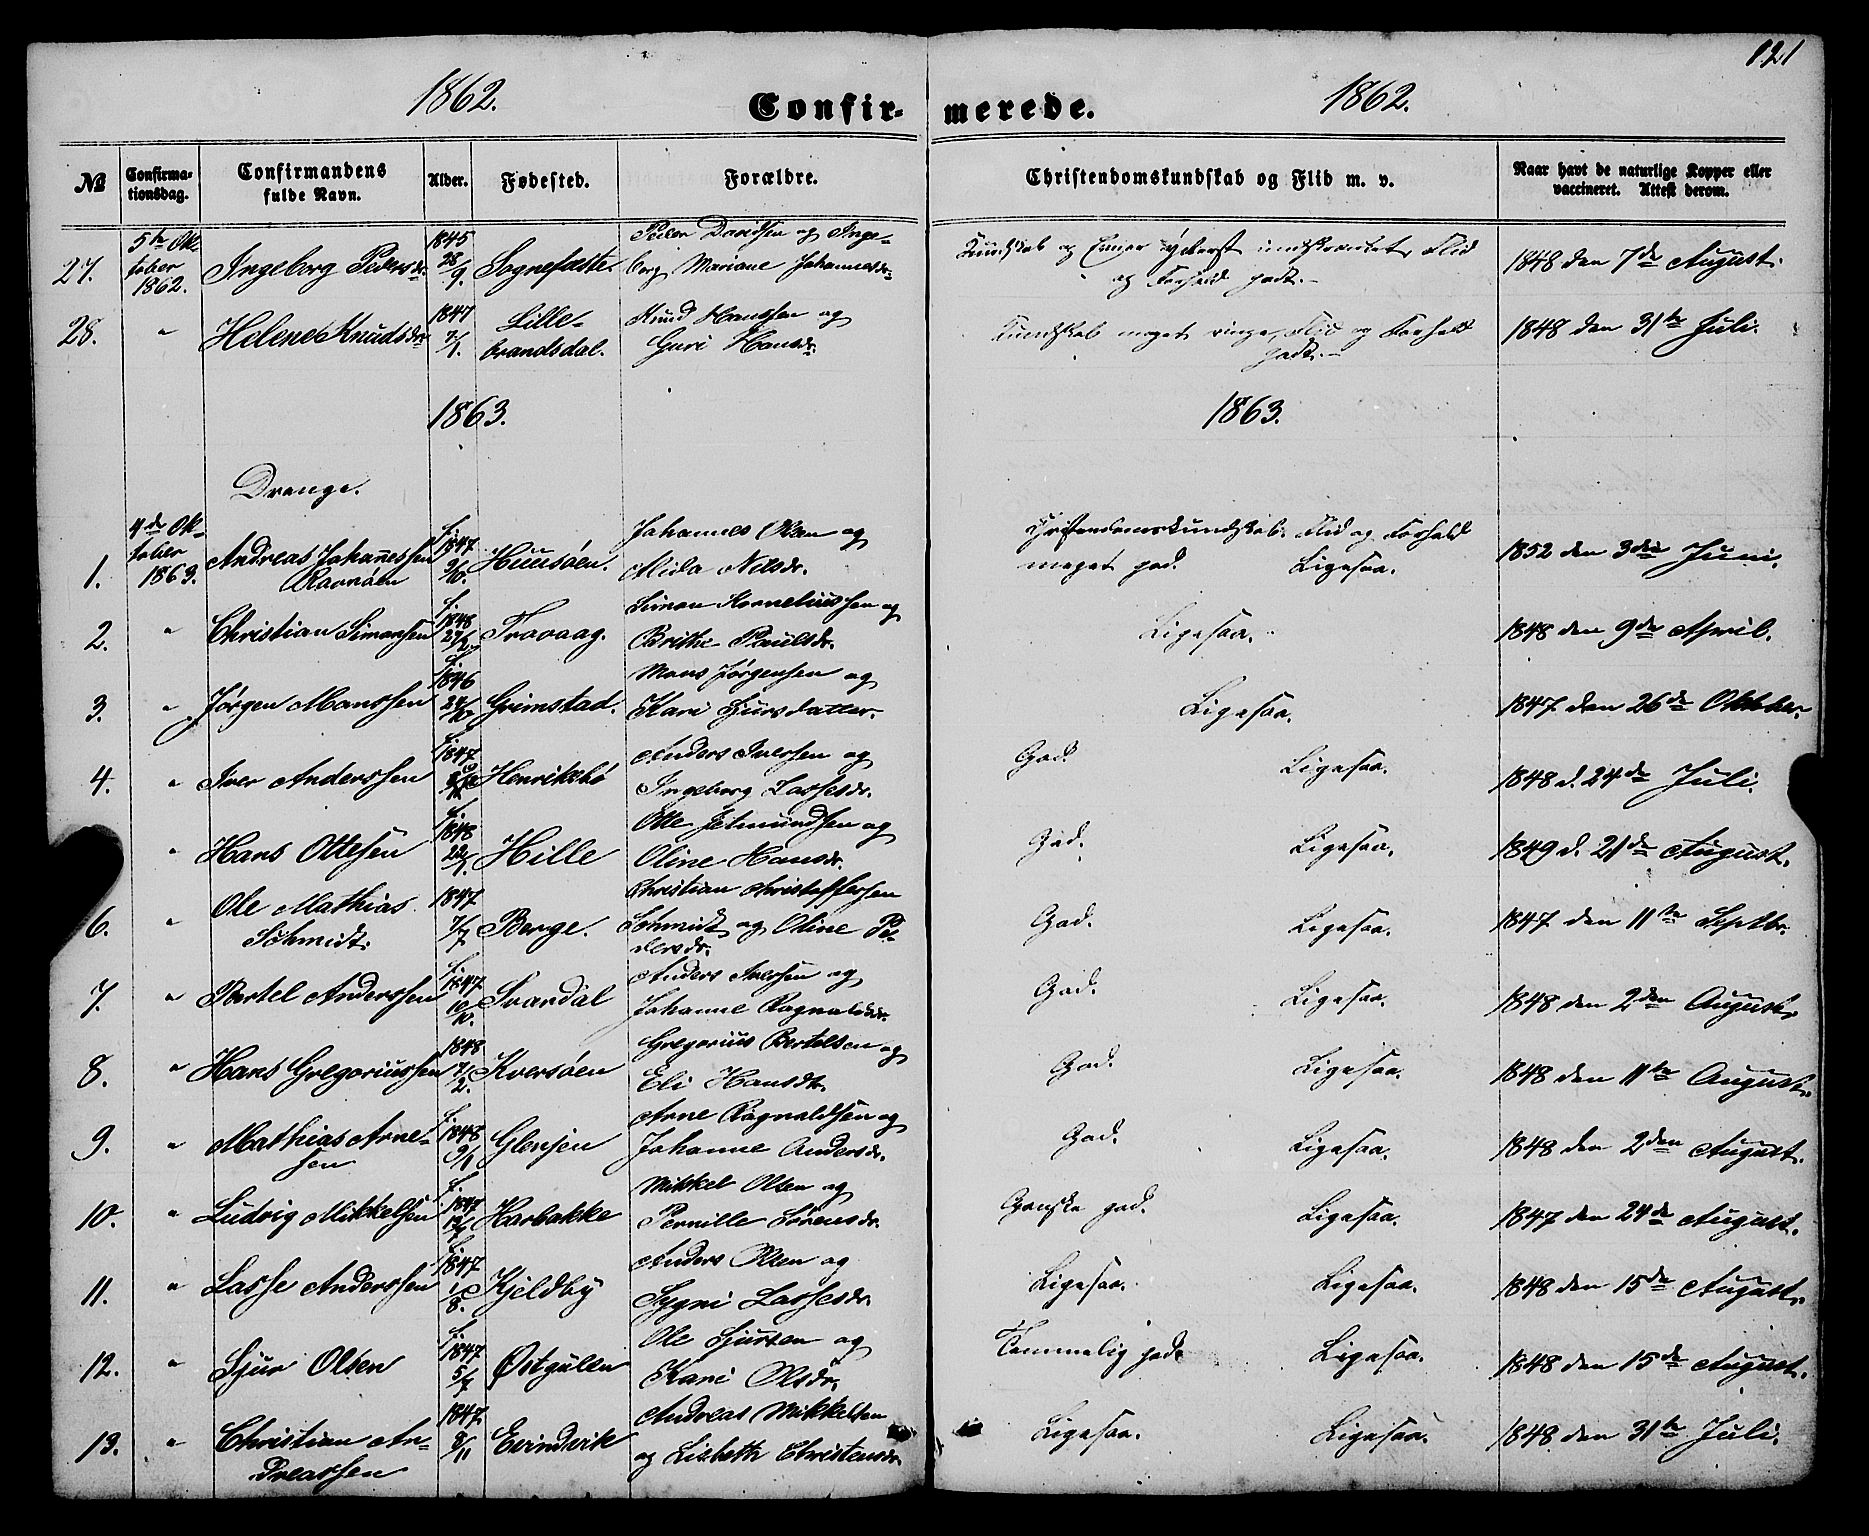 121
1862. Confir- merede. 1862.
№ Confirma-tionsdag. Confirmandens fulde Navn. Alder. Fødested. Forældre. Christendomskundskab og Flid m. v. Naar havt de naturlige Kopper eller vaccineret. Attest derom.
27. 5te Oktober 1862. Ingeborg Pedersdr. 1845 28/9. Sognefæste. Peder Davidsen og Ingeborg Mariane Johannesdr. Kundskab og Evner yderst indskrænket, Flid og Forhold godt. 1848 den 7de August.
28. " Helene Knudsdr. 1847 7/1. Lillebrandsdal. Knud Hanssen og Guri Hansdr. Kundskab meget ringe, Flid og Forhold godt. 1848 den 31te Juli.
1863. 1863.
Drenge.
1. 4de Oktober 1863. Andreas Johannessen Ravnøen f. 1847 9/10. Huusøen. Johannes Olsen og Mida Nilsdr. Christendomskundskab meget god. Flid og Forhold Ligesaa. 1852 den 3die Juni.
2. " Christian Simonsen f. 1848 27/2 Travaag. Simon Korneliussen og Brithe Paulsdr. Ligesaa. 1848 den 9de April.
3. " Jørgen Manssen f. 1846 24/10 Grimstad. Mons Jørgensen og Kari Sjursdatter. Ligesaa. 1847 den 26de Oktober.
4. " Iver Anderssen f. 1847 Henriksbø Anders Iverssen og Ingeborg Lassesdr. God. Ligesaa. 1848 d. 24de Juli.
" Hans Ottesen f. 1848 22/1. Hille Otte Jetmundsen og Oline Hansdr. God. Ligesaa. 1849 d. 21de August.
6. " Ole Mathias Schmidt. 1847 7/7 Berge. Christian Christoffersen Schmidt og Oline Pedersdr. God. Ligesaa. 1847 den 11te Septbr.
7. " Bertel Anderssen f. 1847 10/10. Svardal Anders Iversen og Johanne Ragnaldsdr. God. Ligesaa. 1848 den 2den August.
8. " Hans Gregoriussen 1848 7/2. Kversøen Gregorius Bertelsen og Eli Hansdr. God. Ligesaa. 1848 den 11te August.
9. " Mathias Arnesen f. 1848 9/1 Glenjen Arne Ragnaldsen og Johanne Andersdr. God. Ligesaa. 1848 den 2den August.
10. " Ludvig Mikkelsen f. 1847 Harbakke Mikkel Olsen og Pernille Sørensdr. Ganske god. Ligesaa. 1847 den 24de August.
11. " Lasse Anderssen f. 1847 1/8. Kjeldby Anders Olsen og Sygni Lassesdr. Ligesaa. Ligesaa. 1848 den 15de August.
12. " Sjur Olsen f. 1847 5/7 Østgulen Ole Sjursen og Kari Olsdr. Temmelig god. Ligesaa. 1848 den 15de August.
13. " Christian Andreassen 1847. 8/11 Evindvik Andreas Mikkelsen og Lisbeth Christensdr. Ligesaa. Ligesaa. 1848 den 31te Juli.